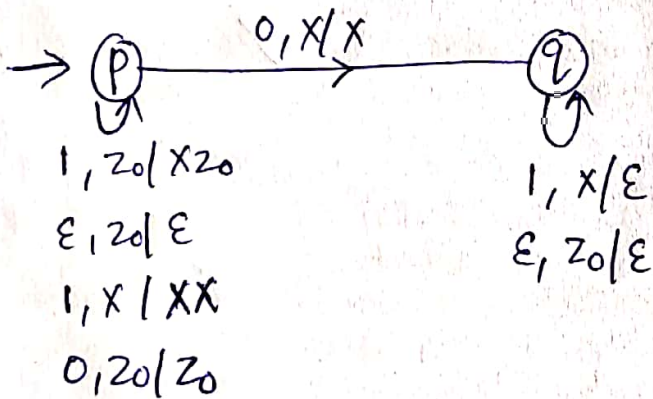 0, X/X
p
q
1, z0/Xz0
ε, z0/ε
1, X/XX
0, z0/z0
1, X/ε
ε, z0/ε